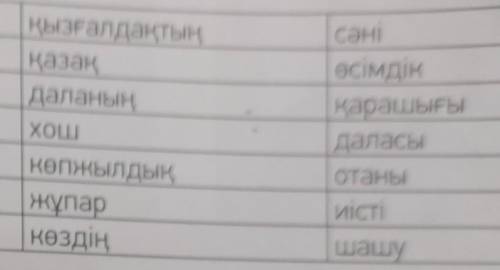 қызғалдақтың сәні
қазақ өсімдік
даланың қарашығы
хош даласы
көпжылдық отаны
жұпар иісті
көздің шашу